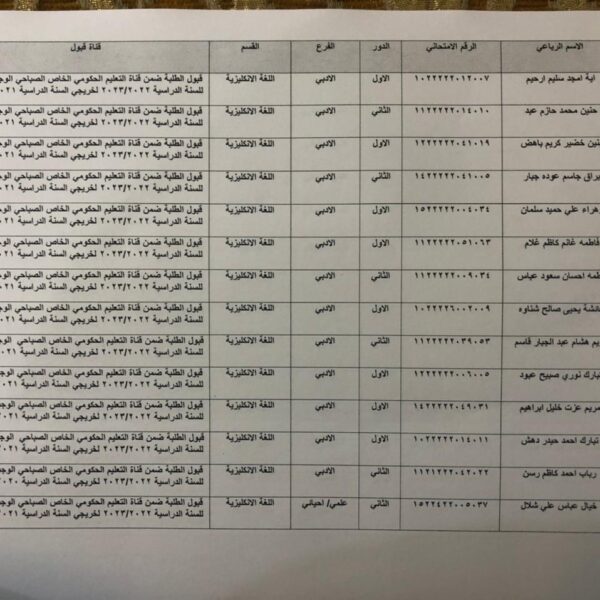 الاسم الرباعي الرقم الامتحاني الدور الفرع القسم قناة قبول
اية امجد سليم ارحيم ١٠٢٢٢٢٢٠١٢٠٠٧ الاول الادبي اللغة الانكليزية قبول الطلبة ضمن قناة التعليم الحكومي الخاص الصباحي
للسنة الدراسية ٢٠٢٣/٢٠٢٢ لخريجي السنة الدراسية
حنين محمد حازم عبد ١١٢٢٢٢٢٠١٤٠١٠ الثاني الادبي اللغة الانكليزية قبول الطلبة ضمن قناة التعليم الحكومي الخاص الصباحي
للسنة الدراسية ٢٠٢٣/٢٠٢٢ لخريجي السنة الدراسية
خضير كريم باهض ١١٢٢٢٢٢٠٤١٠١٩ الاول الادبي اللغة الانكليزية قبول الطلبة ضمن قناة التعليم الحكومي الخاص الصباحي
للسنة الدراسية ٢٠٢٣/٢٠٢٢ لخريجي السنة الدراسية
جاسم عوده جبار ١٤٢٢٢٢٢٠٤١٠٠٥ الثاني الادبي اللغة الانكليزية قبول الطلبة ضمن قناة التعليم الحكومي الخاص الصباحي
للسنة الدراسية ٢٠٢٣/٢٠٢٢ لخريجي السنة الدراسية
علي حميد سلمان ١٥٢٢٢٢٢٠٠٤٠٣٤ الاول الادبي اللغة الانكليزية قبول الطلبة ضمن قناة التعليم الحكومي الخاص الصباحي
للسنة الدراسية ٢٠٢٣/٢٠٢٢ لخريجي السنة الدراسية
فاطمه غانم كاظم غلام ١١٢٢٢٢٢٠٥١٠٦٣ الاول الادبي اللغة الانكليزية قبول الطلبة ضمن قناة التعليم الحكومي الخاص الصباحي
للسنة الدراسية ٢٠٢٣/٢٠٢٢ لخريجي السنة الدراسية
احسان سعود عباس ١١٢٢٢٢٢٠٠٩٠٣٤ الثاني الادبي اللغة الانكليزية قبول الطلبة ضمن قناة التعليم الحكومي الخاص الصباحي
للسنة الدراسية ٢٠٢٣/٢٠٢٢ لخريجي السنة الدراسية
يحيى صالح شناوه ١٠٢٢٢٢٦٠٠٢٠٠٩ الاول الادبي اللغة الانكليزية قبول الطلبة ضمن قناة التعليم الحكومي الخاص الصباحي
للسنة الدراسية ٢٠٢٣/٢٠٢٢ لخريجي السنة الدراسية
هشام عبد الجبار قاسم ١١٢٢٢٢٢٠٣٩٠٥٣ الثاني الادبي اللغة الانكليزية قبول الطلبة ضمن قناة التعليم الحكومي الخاص الصباحي
للسنة الدراسية ٢٠٢٣/٢٠٢٢ لخريجي السنة الدراسية
نوري صبيح عبود ١٢٢٢٢٢٢٠٠٦٠٠٥ الاول الادبي اللغة الانكليزية قبول الطلبة ضمن قناة التعليم الحكومي الخاص الصباحي
للسنة الدراسية ٢٠٢٣/٢٠٢٢ لخريجي السنة الدراسية
مريم عزت خليل ابراهيم ١٤٢٢٢٢٢٠٤٩٠٣١ الاول الادبي اللغة الانكليزية قبول الطلبة ضمن قناة التعليم الحكومي الخاص الصباحي
للسنة الدراسية ٢٠٢٣/٢٠٢٢ لخريجي السنة الدراسية
تبارك احمد حيدر دهش ١٠٢٢٢٢٢٠١٤٠١١ الاول الادبي اللغة الانكليزية قبول الطلبة ضمن قناة التعليم الحكومي الخاص الصباحي
للسنة الدراسية ٢٠٢٣/٢٠٢٢ لخريجي السنة الدراسية
رباب احمد كاظم رسن ١١٢١٢٢٢٠٤٢٠٢٢ الثاني الادبي اللغة الانكليزية قبول الطلبة ضمن قناة التعليم الحكومي الخاص الصباحي
للسنة الدراسية ٢٠٢٣/٢٠٢٢ لخريجي السنة الدراسية
خيال عباس علي شلال ١٥٢٢٤٢٢٠٠٥٠٣٧ الثاني علمي/ احيائي اللغة الانكليزية قبول الطلبة ضمن قناة التعليم الحكومي الخاص الصباحي
للسنة الدراسية ٢٠٢٣/٢٠٢٢ لخريجي السنة الدراسية